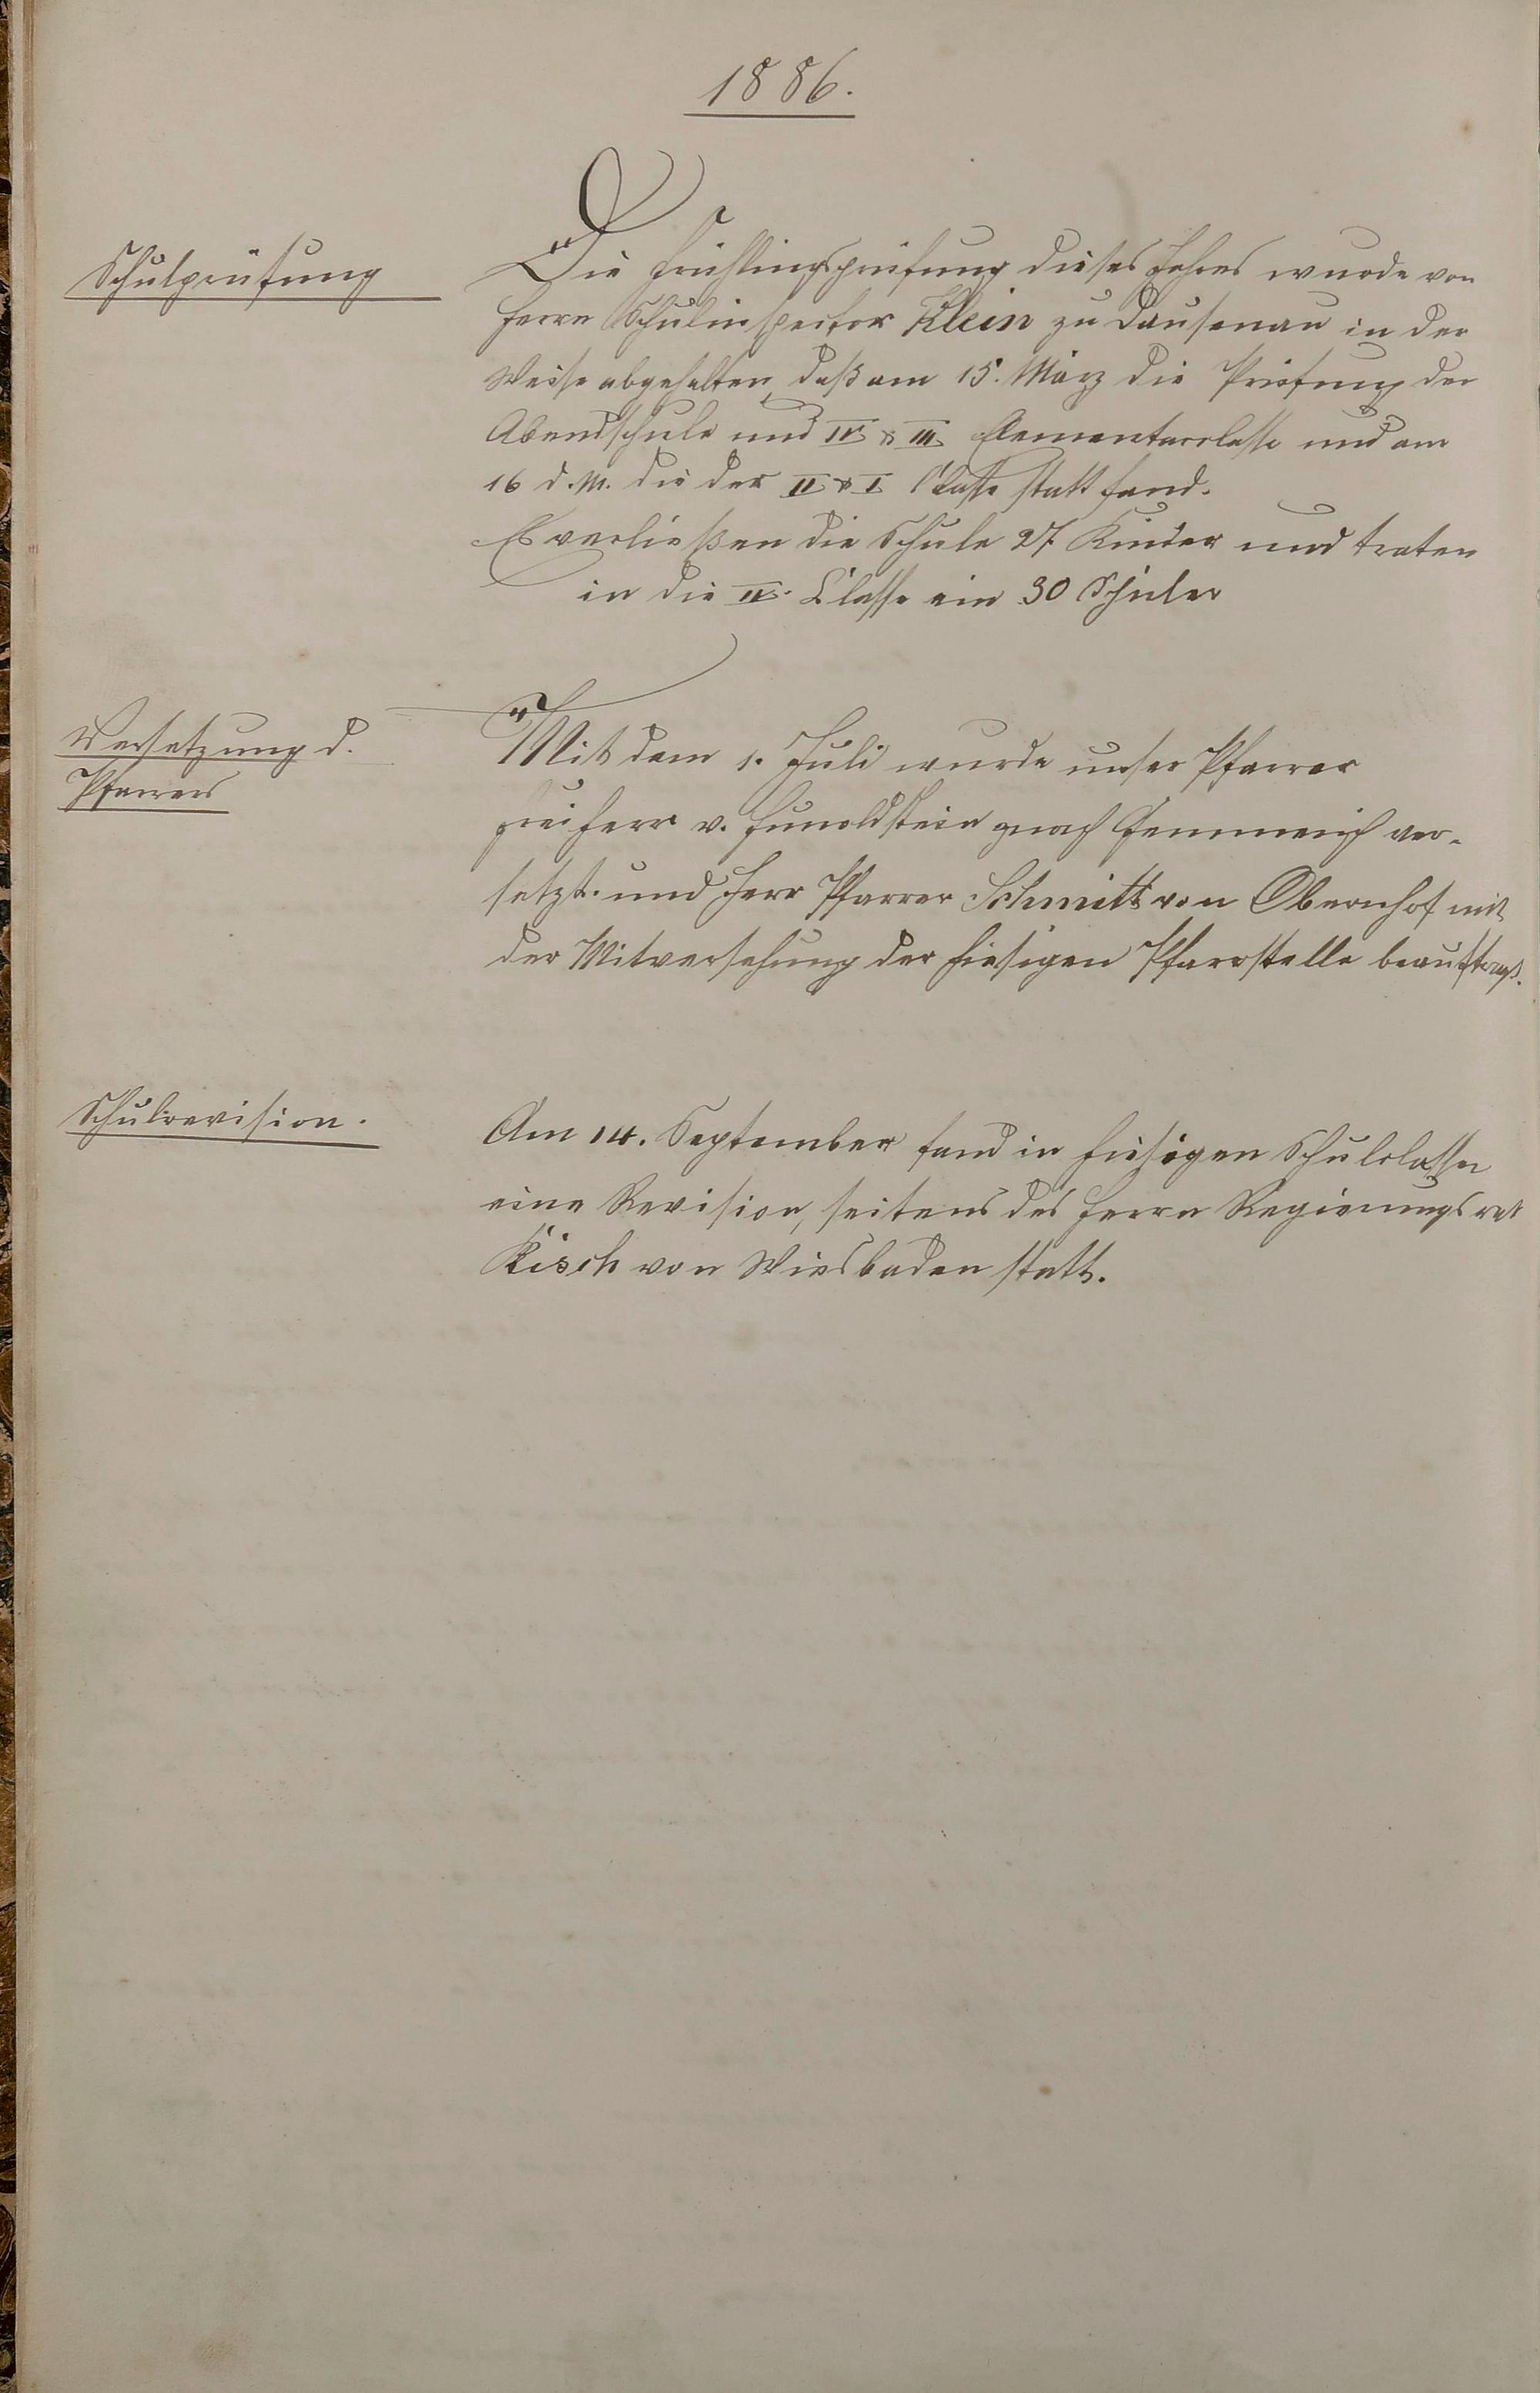 1886.
Schulprüfung
Die Frühlingsprüfung dieses Jahres wurde von
Herrn Schulinspector Klein zu Dausenau in der
Weise abgehalten, daß am 15. März die Prüfung der
Abendschule und IV & III Elementarclasse und am
16 d. M. die der II & I Classe statt fand.
Es verließen die Schule 27 Kinder und traten
in die IV. Classe ein 30 Schüler
Versetzung d.
Pfarrers
Mit dem 1. Juli wurde unser Pfarrer
Freiherr v. nach Gemmerich ver-
setzt. und Herr Pfarrer Schmitt von Obernhof mit
der Mitversehung der hiesigen Pfarrstelle beauftragt.
Schulrevision.
Am 14. September fand in hiesigen Schulclassen
eine Revision, seitens des Herrn Regierungsrat
von Wiesbaden statt.